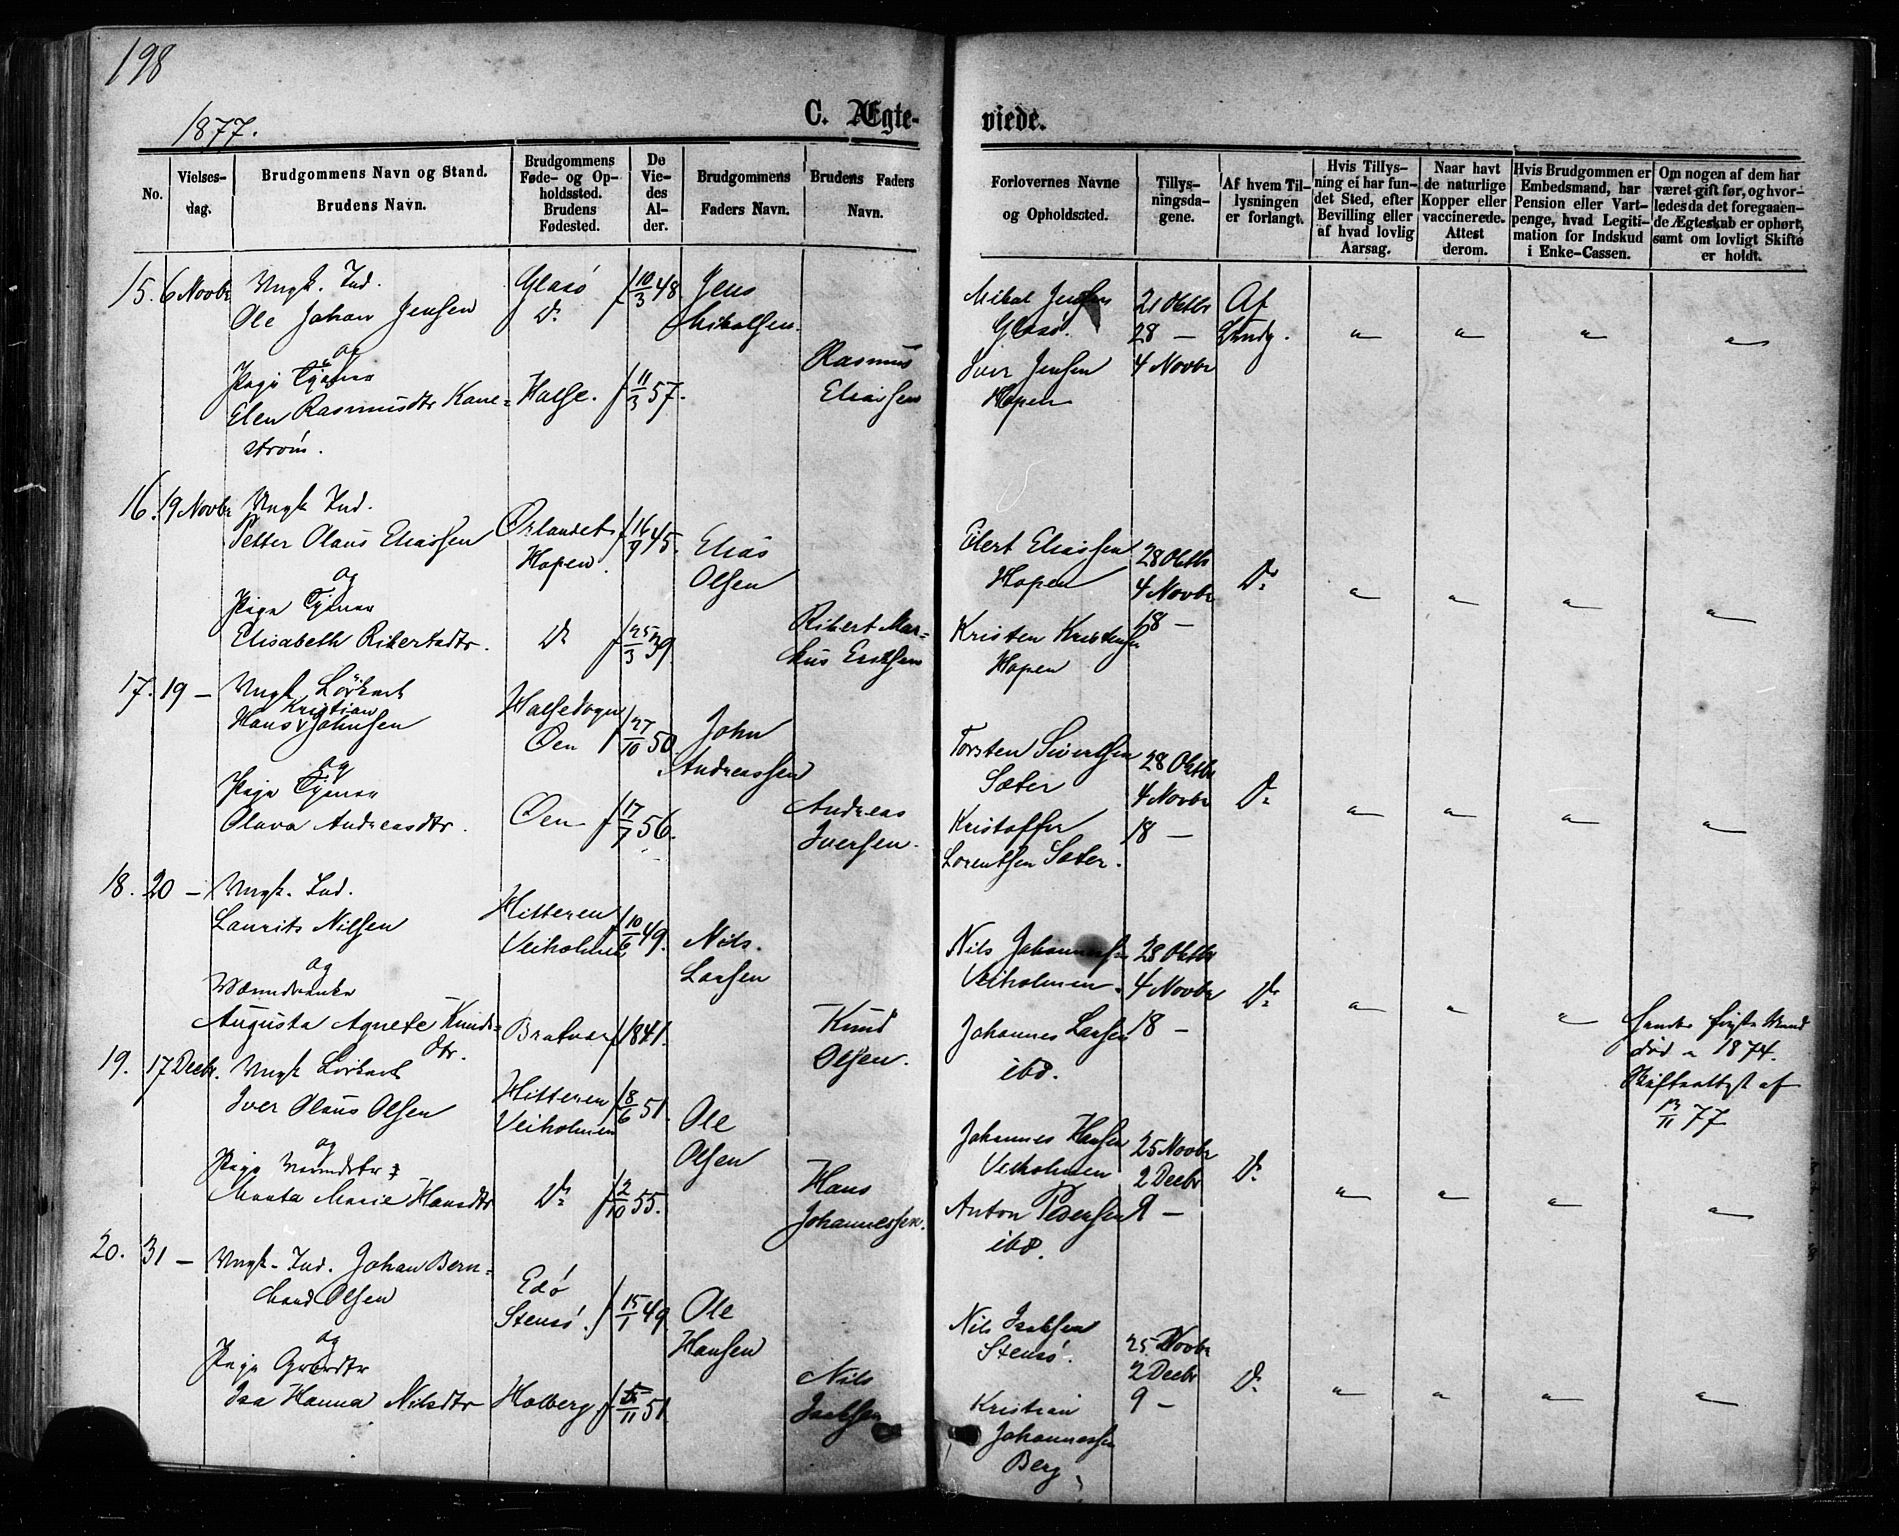 198
1877.
C. Ægteviede.
No.
Vielses-
dag.
Brudgommens Navn og Stand.
Brudens Navn.
Brudgommens
Føde- og Op-
holdssted.
Brudens
Fødested.
De
Vie-
des
Al-
der.
Brudgommens
Faders Navn.
Brudens Faders
Navn.
Forlovernes Navne
og Opholdssted.
Tillys-
ningsda-
gene.
Af hvem Til-
lysningen
er forlangt.
Hvis Tillys-
ning ei har fun-
det Sted, efter
Bevilling eller
af hvad lovlig
Aarsag.
Naar havt
de naturlige
Kopper eller
vaccinerede.
Attest
derom.
Hvis Brudgommen er
Embedsmand, har
Pension eller Vart-
penge, hvad Legiti-
mation for Indskud
i Enke-Cassen.
Om nogen af dem har
været gift før, og hvor-
ledes da det foregaaen-
de Ægteskab er ophørt,
samt om lovligt Skifte
er holdt.
15. 6 Novbr Ungk. Ind. Glasø f 10/3 48 Jens Mikal Jensen 21 Oktbr Af
Ole Johan Jensen Do Mikalsen. Glasø. 28 —
og Rasmus Iver Jensen 4 Novbr
Pige Tjener
Elen Rasmusdtr Kane= Halse. f 11/3 57. Eliassen Hopen
strøm.
16. 19 Novbr Ungk Ind.
Petter Olaus Eliassen Ørlandet f 16/9 45. Elias Eilert Eliassen 28 Oktbr
og Hopen. Olsen Hopen 4 Novbr Do
Pige Tjener
Elisabeth Rikertsdtr. Do f 25/3 39. Rikert Mar= Kristen Kristensen 18 —
kus Eriksen Hopen
17. 19 — Ungk
Hans Kristian Johnsen Øen f 27/10 50. John Torsten Sivertsen 28 Oktbr
og Andreassen Sæter 4 Novbr Do
Pige Tjener
Olava Andreasdtr. Øen f 17/7 56. Andreas Kristoffer 18 —
Iversen. Lorentsen Sæter.
18. 20 — Ungk. Ind.
Laurits Nilsen Hitteren f 10/6 49. Nils Nils Johannessen 28 Oktbr
og Veiholmen Larsen Veiholmen. 4 Novbr Do
Augusta Agnete Knuds= Bratvær f 1841. Knud Johannes Larsen 18 —
dtr. Olsen. ibd.
død 1874.
af
13/11 77
19. 17 Decbr. Ungk
Iver Olaus Olsen Hitteren f 8/6 51. Ole Johannes Hansen 25 Novbr
og Veiholmen Olsen Veiholmen 2 Decbr Do
Pige
Marta Marie Hansdtr Do f 2/10 55. Hans Anton Pedersen 9 —
Johannessen. ibd.
20. 31 — Ungk. Ind. Johan Bern=
hard Olsen Edø f 15/1 49. Ole Nils Isaksen 25 Novbr
og Stensø. Hansen Stensø. 2 Decbr Do
Pige
Isa Hanna Nilsdtr Holberg f 5/11 51 Nils Kristian 9 —
Isaksen Johannessen
Berg